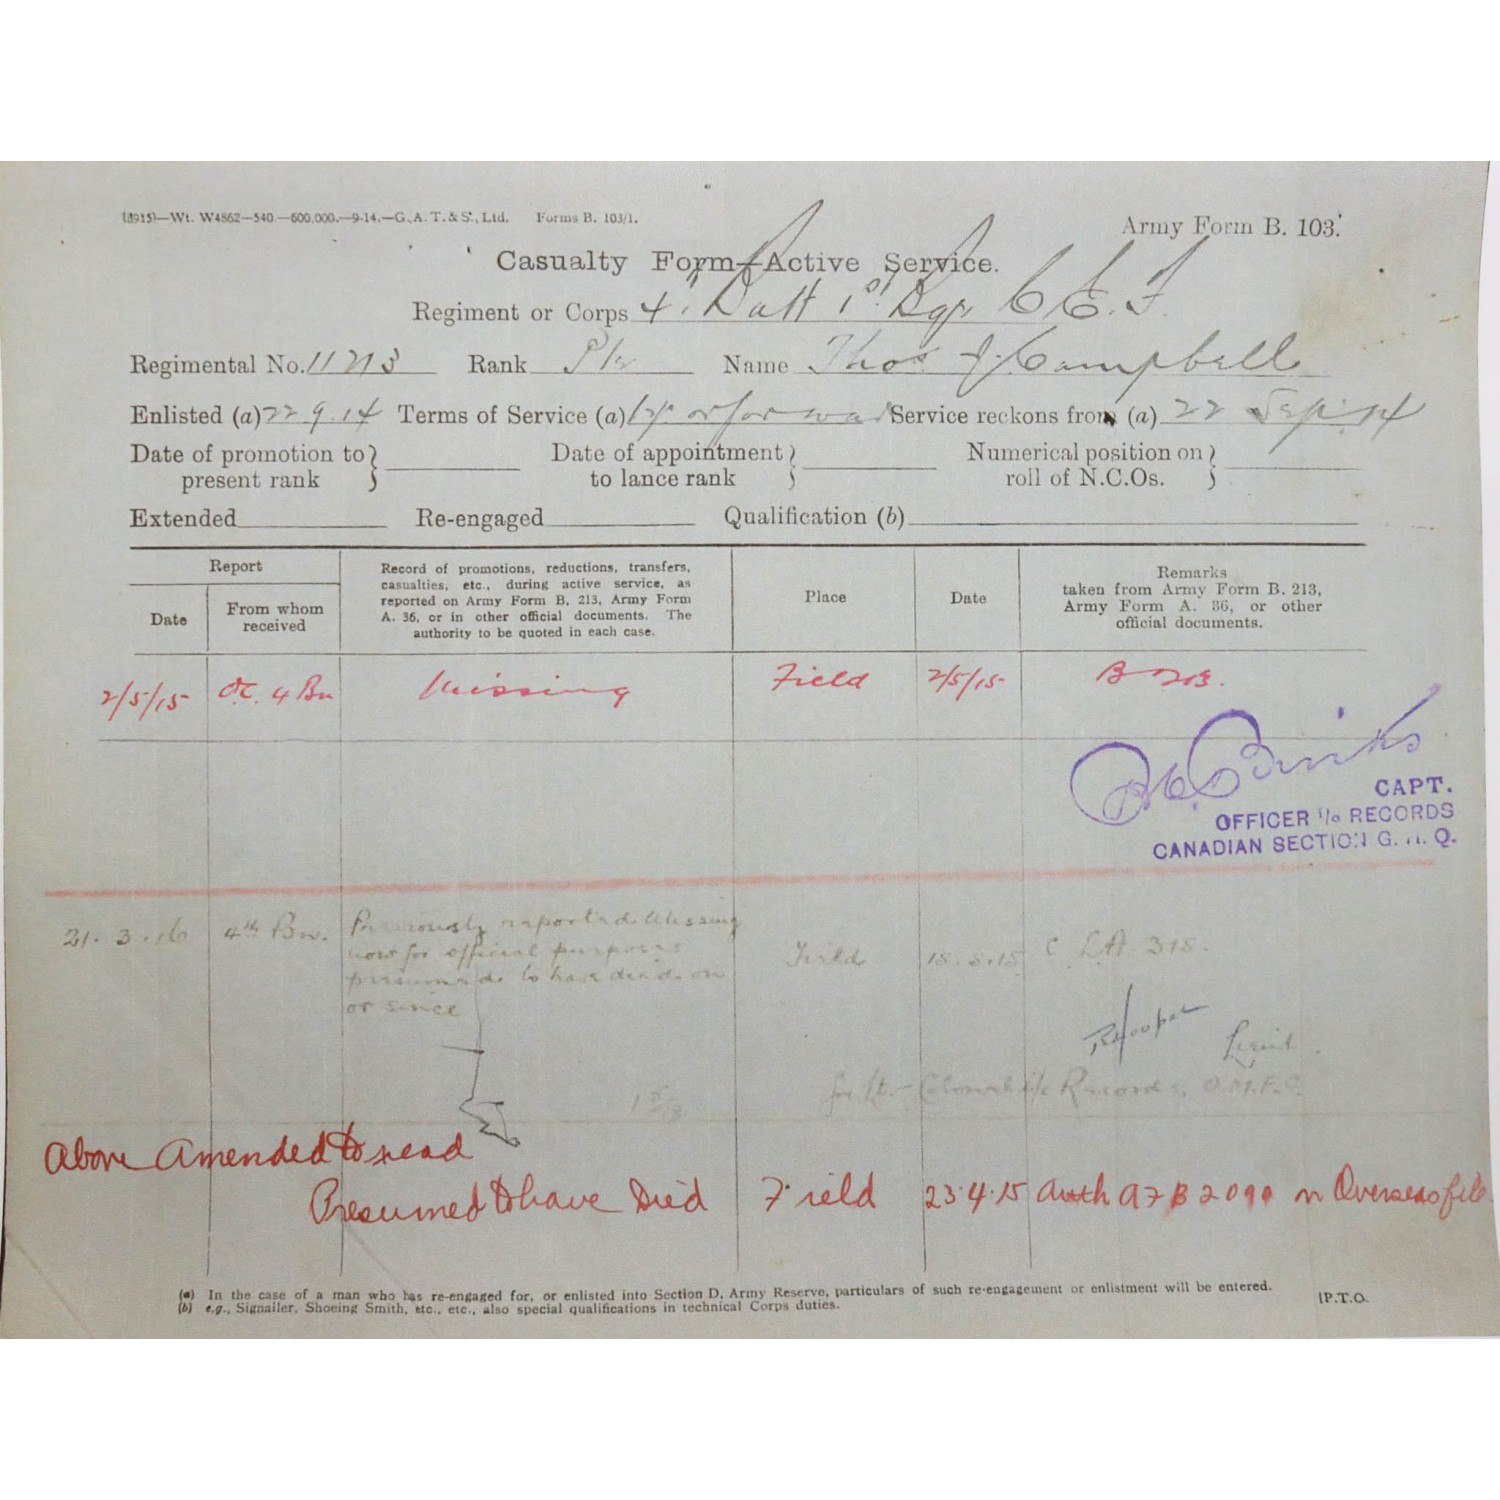 (8915)—Wt. W4862—540.—600,000.—9-14.—G., A. T. & S., Ltd. Forms B. 103/1.
Army Form B. 103.
Casualty Form—Active Service.
Regiment or Corps 4th Batt 1st Bgde C. E. F.
Regimental No. 11213 Rank Pte Name Thos J. Campbell
Enlisted (a) 22 9.14 Terms of Service (a) 1 yr or for war Service reckons from (a) 22 Sept. 14
Date of promotion to present rank
Date of appointment to lance rank
Numerical position on roll of N.C.Os.
Extended Re-engaged Qualification (b)
Report
Date
From whom received
Record of promotions, reductions, transfers,
casualties, etc., during active service, as
reported on Army Form B. 213, Army Form
A. 36, or in other official documents. The
authority to be quoted in each case.
Place
Date
Remarks
taken from Army Form B. 213,
Army Form A. 36, or other
official documents.
2/5/15 O.C. 4 Bn Missing Field 2/5/15 B 213.
CAPT.
OFFICER i/c RECORDS
CANADIAN SECTION G. H. Q.
21.3.16 4th Bn. Previously reported Missing
now for official purposes
presumed to have died on
or since
Field C.L.A. 315.
Lieut.
for Lt.-Colonel i/c Records, O.M.F.C.
Above Amended to read
Presumed to have Died Field 23.4.15 Auth AFB 2090 on Overseas file
(a) In the case of a man who has re-engaged for, or enlisted into Section D, Army Reserve, particulars of such re-engagement or enlistment will be entered.
(b) e.g., Signaller, Shoeing Smith, etc., etc., also special qualifications in technical Corps duties.
[P.T.O.